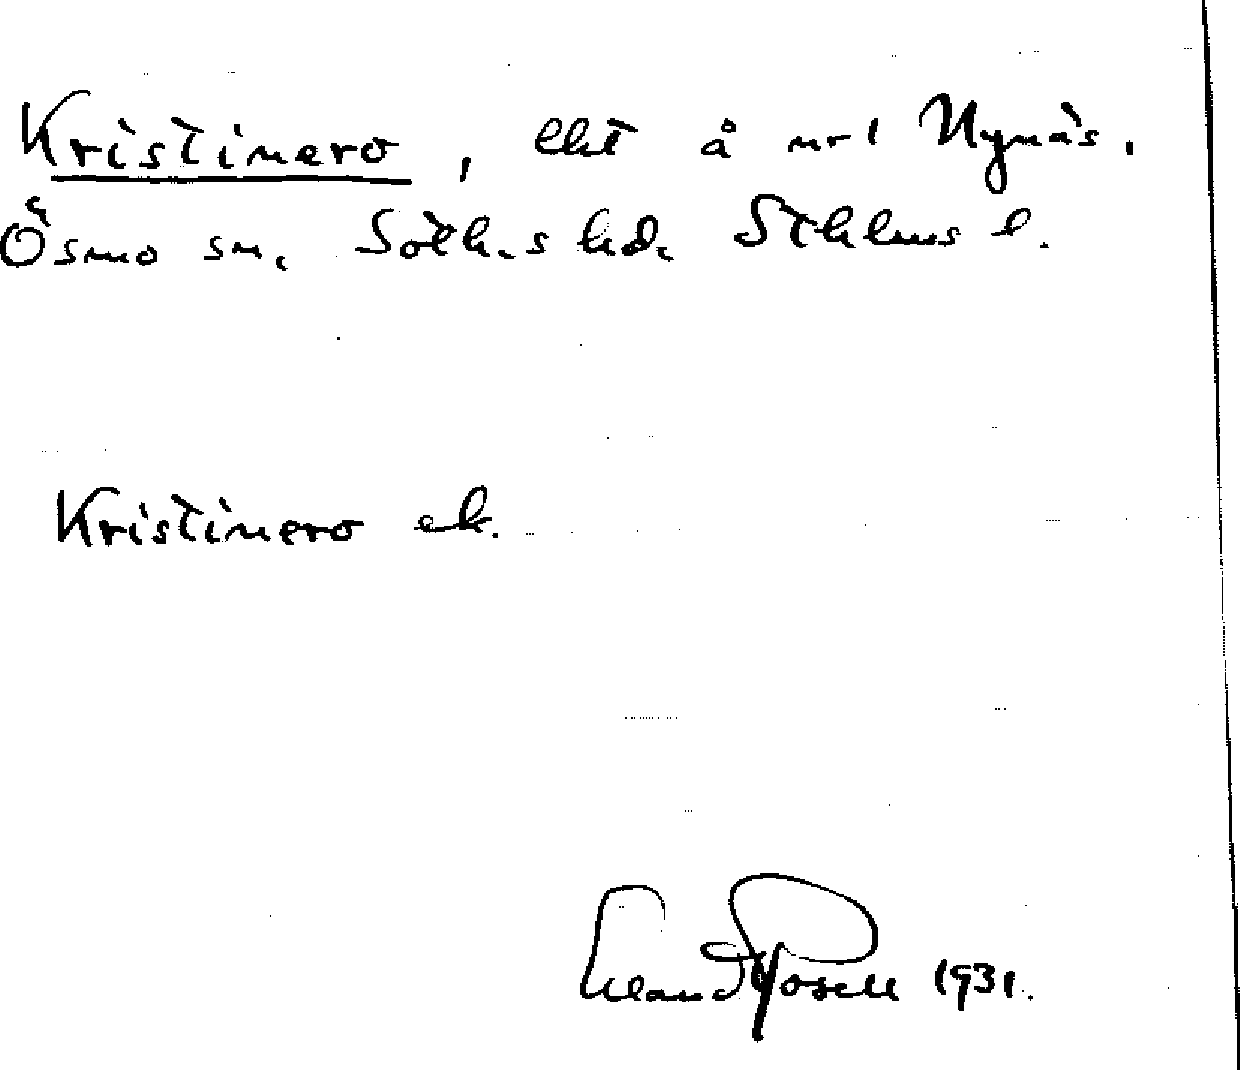 Kristinero, lht å nr 1 Nynäs.
Ösmo sn. Soth.s hd. Sthlms l.
Kristinero ek.
Erland Rosell 1931.